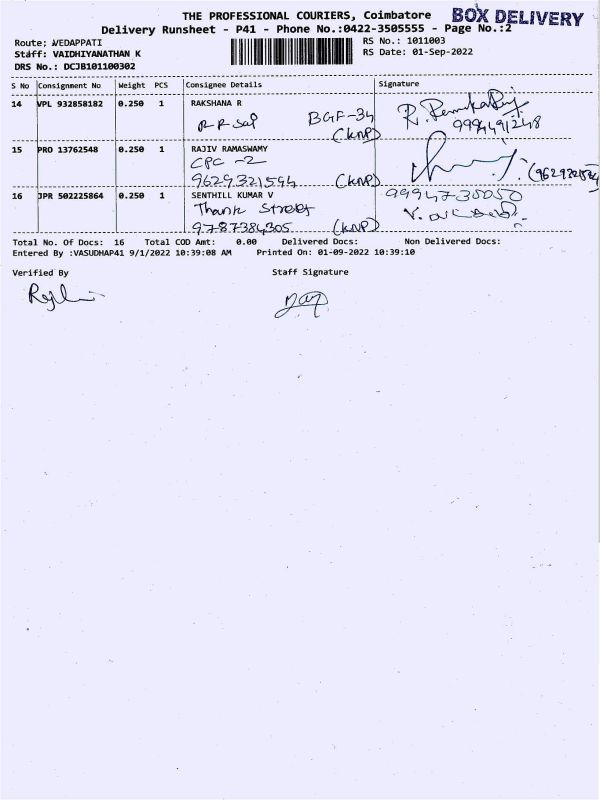 THE PROFESSIONAL COURIERS, Coimbatore BOX DELIVERY
Delivery Runsheet - P41 - Phone No.:0422-3505555 - Page No.:2
Route: VEDAPPATI RS No.: 1011003
Staff: VAIDHIYANATHAN K RS Date: 01-Sep-2022
DRS No.: DCJB101100302
S No Consignment No Weight PCS Consignee Details Signature
14 VPL 932858182 0.250 1 RAKSHANA R
R R Sai BGF-34
(KNP)
15 PRO 13762548 0.250 1 RAJIV RAMASWAMY
CPC -2
9629321594 (KNP)
16 JPR 502225864 0.250 1 SENTHILL KUMAR V 99947-30050
Thank Street
9787384305 (KNP)
Total No. Of Docs: 16 Total COD Amt: 0.00 Delivered Docs: Non Delivered Docs:
Entered By :VASUDHAP41 9/1/2022 10:39:08 AM Printed On: 01-09-2022 10:39:10
Verified By Staff Signature